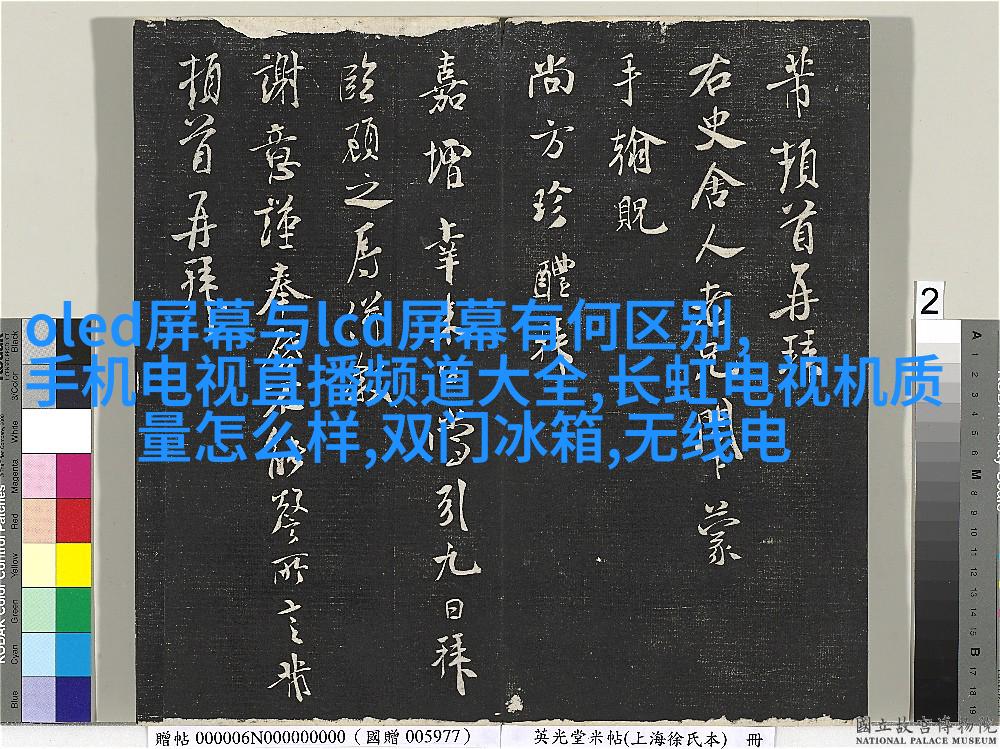 芾頓首再拜
右史舍人尊兄閤下蒙
手翰貺
尚方珍醴珠
嘉增幸來日當引九日拜
臨顧之辱
謝意謹奉啓不能盡所言芾
頓首再拜
oled屏幕与lcd屏幕有何区别,
手机电视直播频道大全,长虹电视机质
量怎么样,双门冰箱,无线电
2
Black
3/Color
White
Magenta
Red
Yellow
Green
Cyan
Blue
KODAK Color Control Patches
A
1
2
3
4
5
6
M
8
9
10
11
12
13
14
15
B
17
18
19
贈帖 000006N000000000 (國贈 005977)
英光堂米帖(上海徐氏本) 冊
國立故宮博物院
NATIONAL PALACE MUSEUM